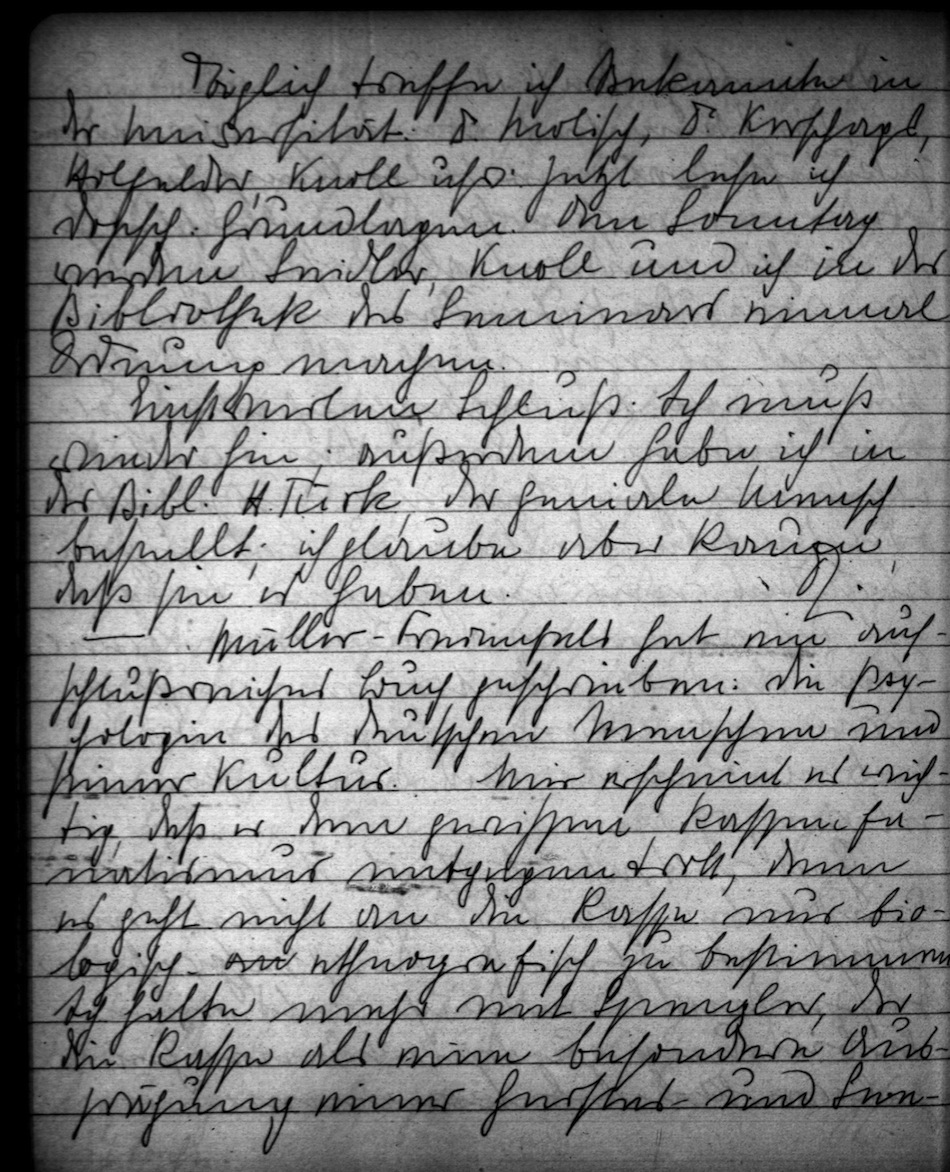 Täglich treffe ich Bekannte in
der Universität. D. Molisch, Dr.
Knoll usw. Jetzt lese ich
Dopsch. Grundlagen. Den Sonntag
werden Seidler, Knoll und ich in der
Bibliothek des Seminars einmal
Ordnung machen.
Schluß. Ich muß
wieder hin; außerdem habe ich in
der Bibl. H. Türk, Der geniale Mensch
bestellt; ich glaube aber kaum,
daß sie es haben.
Müller-Freienfels hat ein auf-
schlußreiches Buch geschrieben: Die Psy-
chologie des deutschen Menschen und
seiner Kultur. Mir erscheint es wich-
tig, daß er dem gewissen Rassenfa-
natismus entgegentritt, denn
es geht nicht an die Rasse nur bio-
logisch-ethnografisch zu bestimmen
Ich halte mehr mit Spengler, der
die Rasse als eine besondere Aus-
prägung eines Geistes- und See-